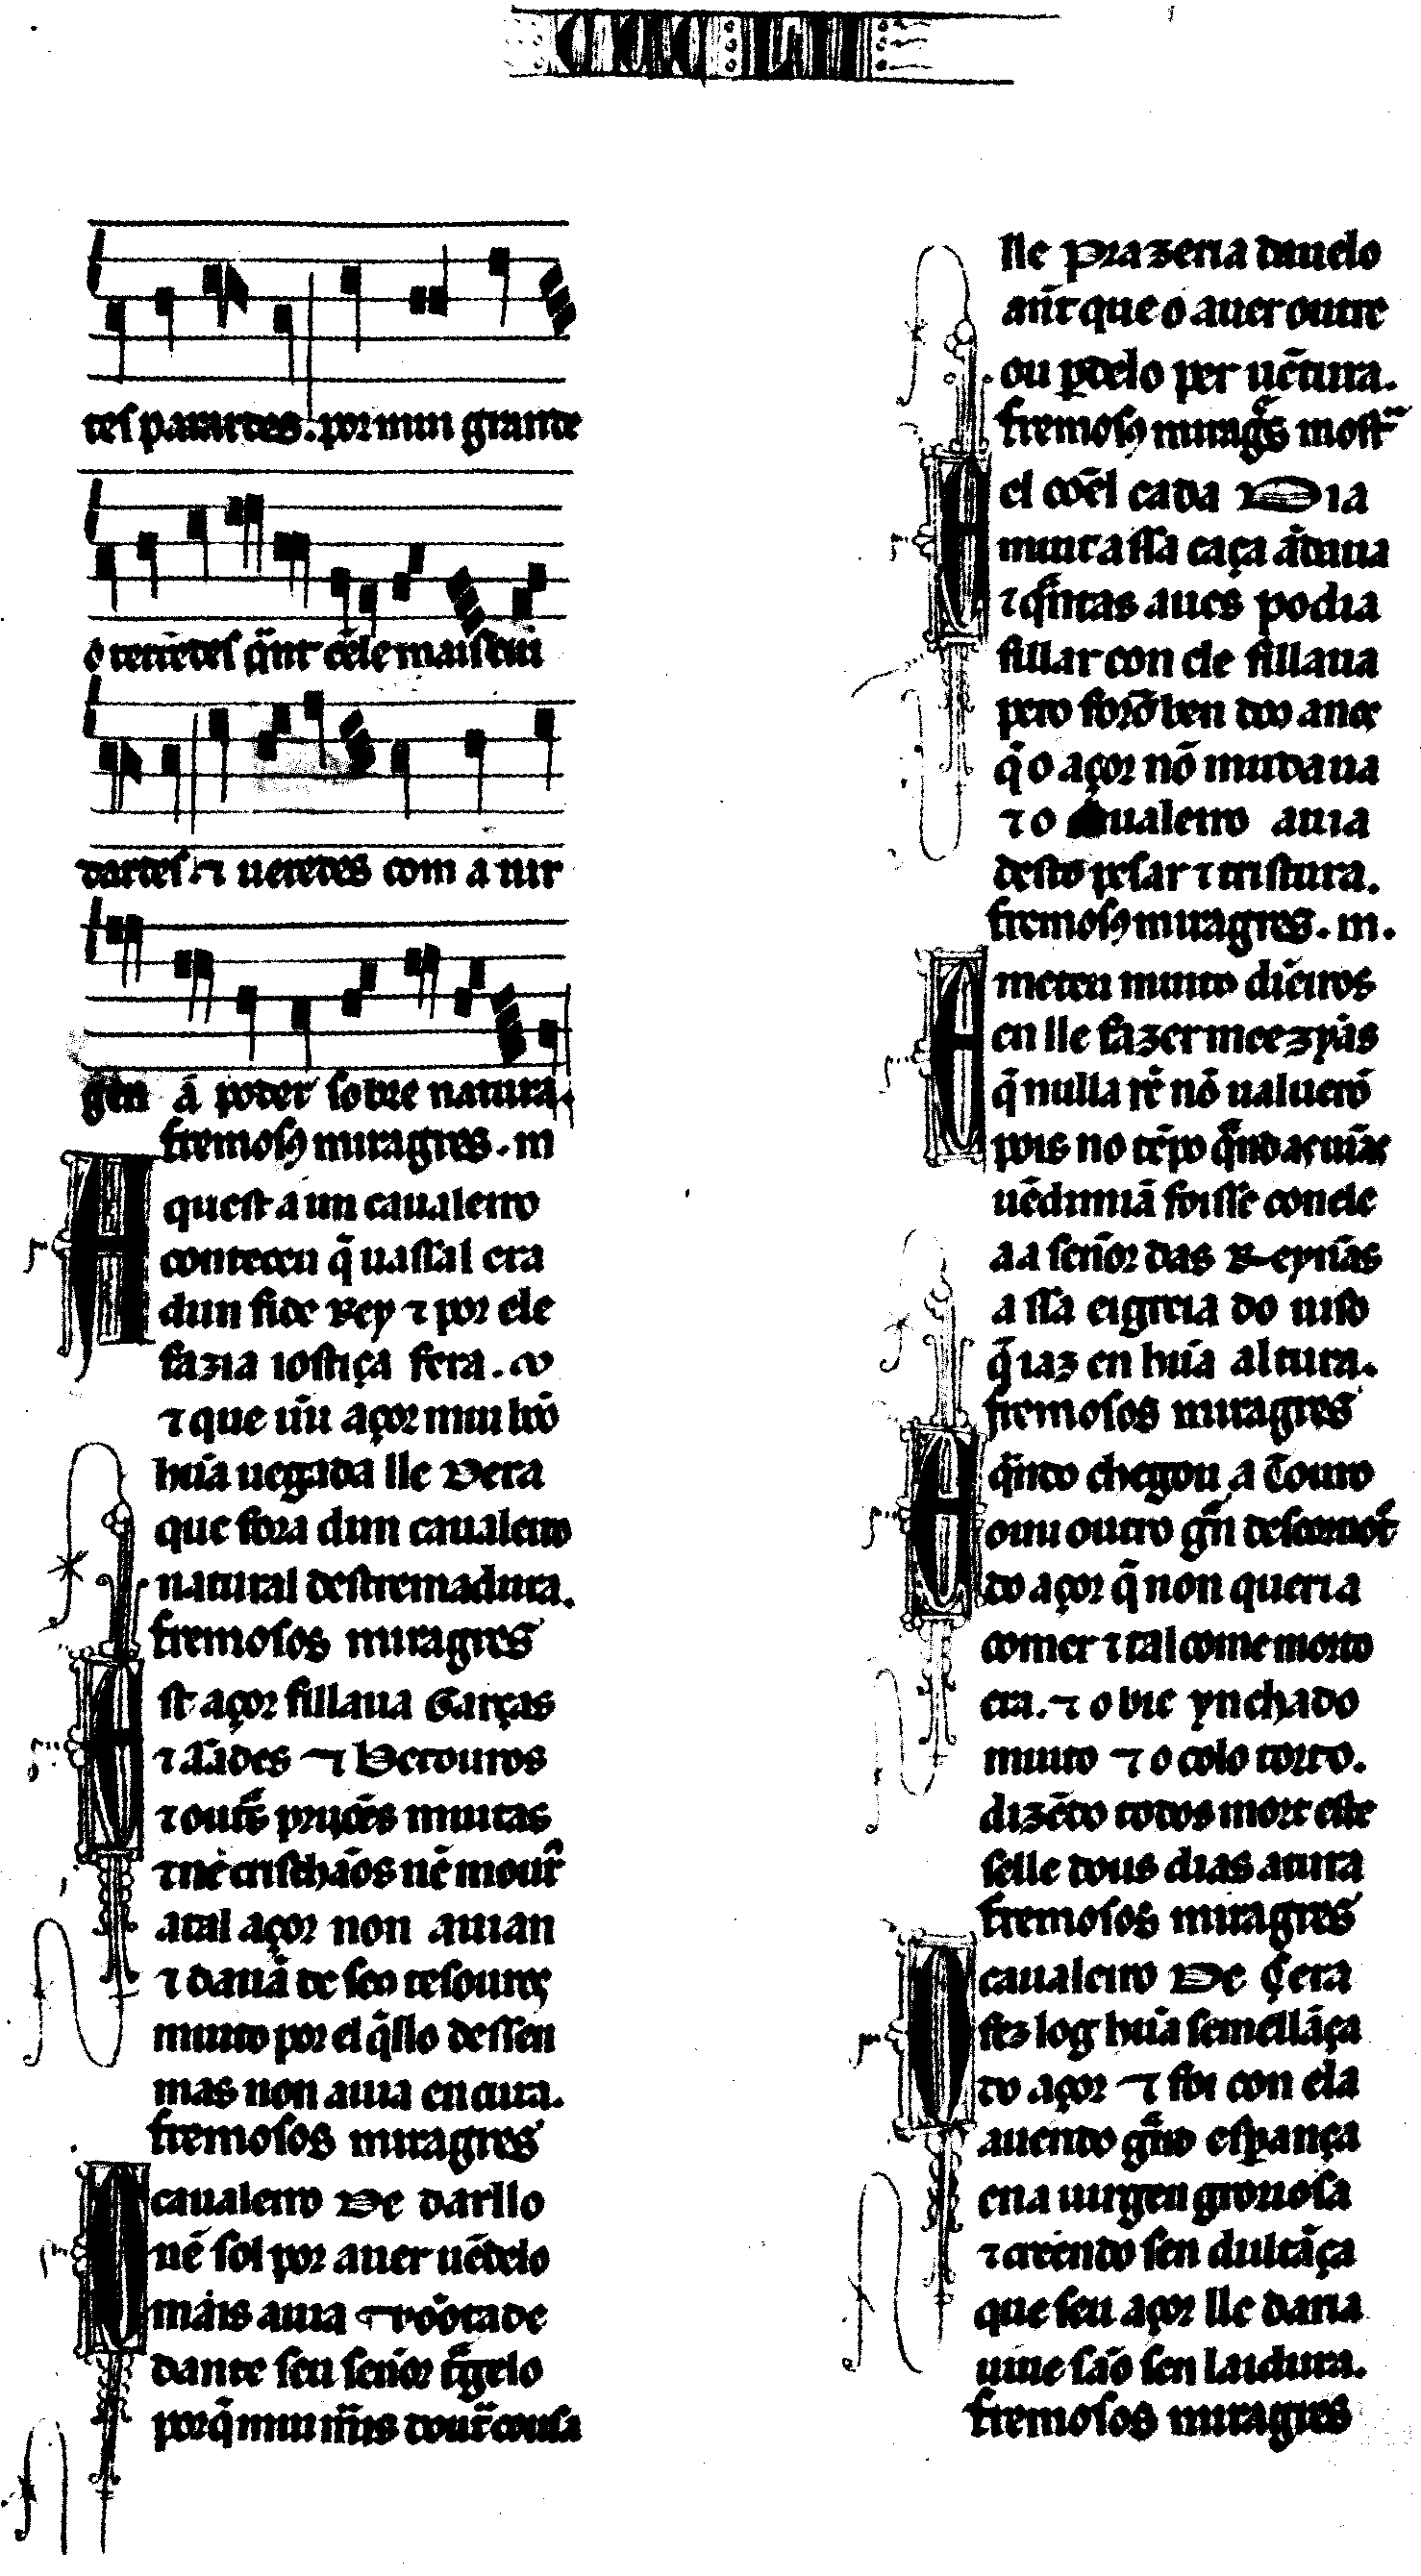 tes parardes. por mui grande
o terredes q̃nt cẽle mais d'ui
dartes. ⁊ ueredes com a uir
gen á poder sobre natura.
fremosos miragres. m
A quest a un caualeiro
conteceu q̃ uassal era
dun fide Rey ⁊ por ele
fazia iostiça fera.
⁊ que ũu açor mui bõo
hũa uegada lle dera
que fora dun caualeiro
natural destremadura.
fremosos miragres
E st açor fillaua Garças
⁊ ããdes ⁊ Betouros
⁊ outᷣs prijões muitas
⁊ nẽ crischãos nẽ mour̃
atal açor non auian
⁊ dauã de seo tesouros
muito por el q̃llo dessen
mas non auia en cura.
fremosos miragres
O caualeiro de darllo
nẽ sol por auer uẽdelo
máis auia uoontade
dante seu señor tᷣgelo
porq̃ mui mais doutᷣ cousa
lle prazeria dauelo
ant que o auer outre
ou ꝑdelo per uẽtura.
fremosos miragᷣs most
E el cõel cada dia
muit a ssa caça ãdaua
⁊ qᷣntas aues podia
fillar con ele fillaua
pero forõ ben dos anos
q̃ o açor nõ mudaua
⁊ o caualeiro auia
desto pesar ⁊ tristura.
fremosos miragres. m.
E meteu muito diñeiros
en lle fazer meezỹas
q̃ nulla rẽ nõ ualuerõ
pois no tẽpo qᷣndas uĩas
uẽdimiã foisse con ele
a a señor das Reynas
a ssa eigreia do uiso
q̃ iaz en hũa altura.
fremosos miragres
E qᷣndo chegou a Touro
ouu outro gᷣn desconort
do açor q̃ non queria
comer ⁊ tal come morto
era. ⁊ o bic ynchado
muito ⁊ o colo torto.
dizẽdo todos mort este
selle dous dias atura
fremosos miragres
O caualeiro de çera
fez log hũa semellãça
do açor ⁊ foi con ela
auendo gᷣnd esꝑança
ena uirgen groriosa
⁊ creendo sen dultãça
que seu açor lle daria
uiue são sen laidura.
fremosos miragres